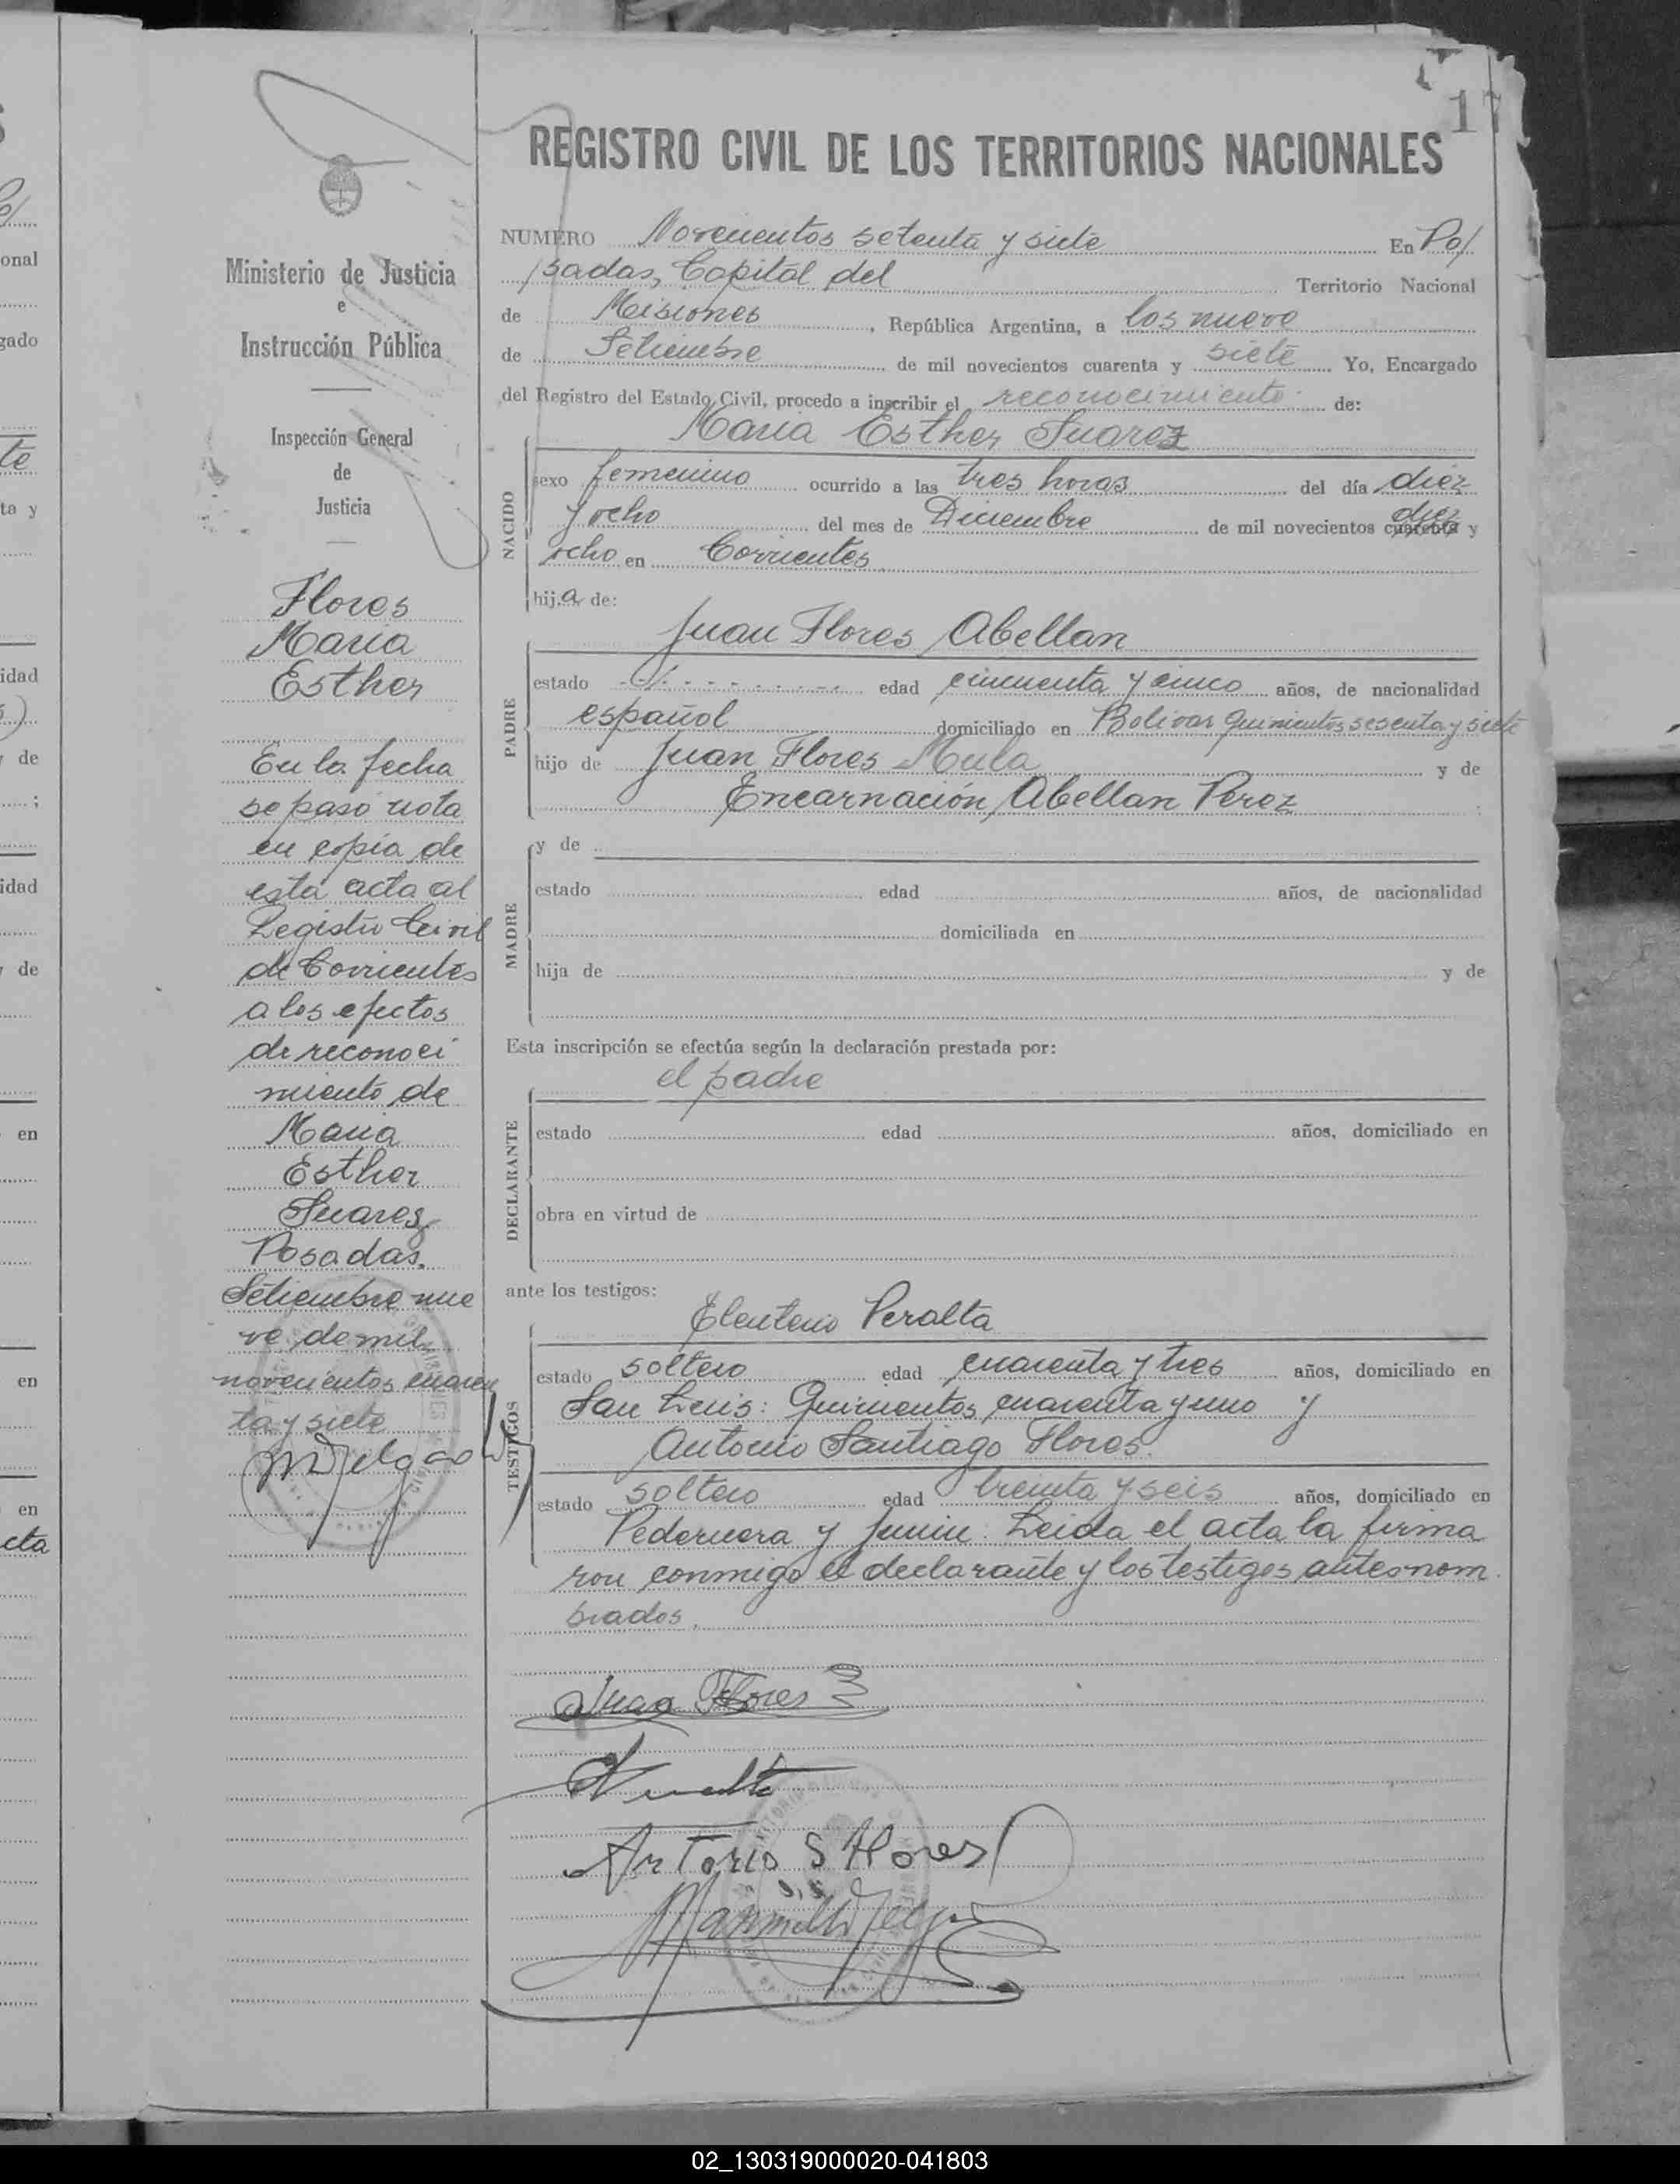 17
REGISTRO CIVIL DE LOS TERRITORIOS NACIONALES
NUMERO Novecientos setenta y siete En Po/
/sadas, Capital del Territorio Nacional
de Misiones, República Argentina, a los nueve
de Setiembre de mil novecientos cuarenta y siete Yo, Encargado
del Registro del Estado Civil, procedo a inscribir el reconocimiento de:
Maria Esther Suarez
NACIDO
sexo femenino ocurrido a las tres horas del día diez
y ocho del mes de Diciembre de mil novecientos cuarenta diez y
ocho en Corrientes
hija de:
Juan Flores Abellan
PADRE
estado edad cincuenta y cinco años, de nacionalidad
español domiciliado en Bolivar quinientos sesenta y siete
hijo de Juan Flores Mula y de
Encarnación Abellan Perez
MADRE
y de
estado edad años, de nacionalidad
domiciliada en
hija de y de
Esta inscripción se efectúa según la declaración prestada por:
el padre
DECLARANTE
estado edad años, domiciliado en
obra en virtud de
ante los testigos:
Eleuterio Peralta
TESTIGOS
estado soltero edad cuarenta y tres años, domiciliado en
San Luis: Quinientos cuarenta y uno y
Antonio Santiago Flores.
estado soltero edad treinta y seis años, domiciliado en
Pedernera y Junin. Leida el acta la firma
ron conmigo el declarante y los testigos antes nom
brados.
Juan Flores
Antonio S Flores
Ministerio de Justicia
e
Instrucción Pública
Inspección General
de
Justicia
Flores
Maria
Esther
En la fecha
se pasó nota
en copia de
esta acta al
Registro Civil
de Corrientes
a los efectos
de reconoci
miento de
Maria
Esther
Suarez
Posadas.
Setiembre nue
ve de mil
novecientos cuaren
ta y siete
02_130319000020-041803